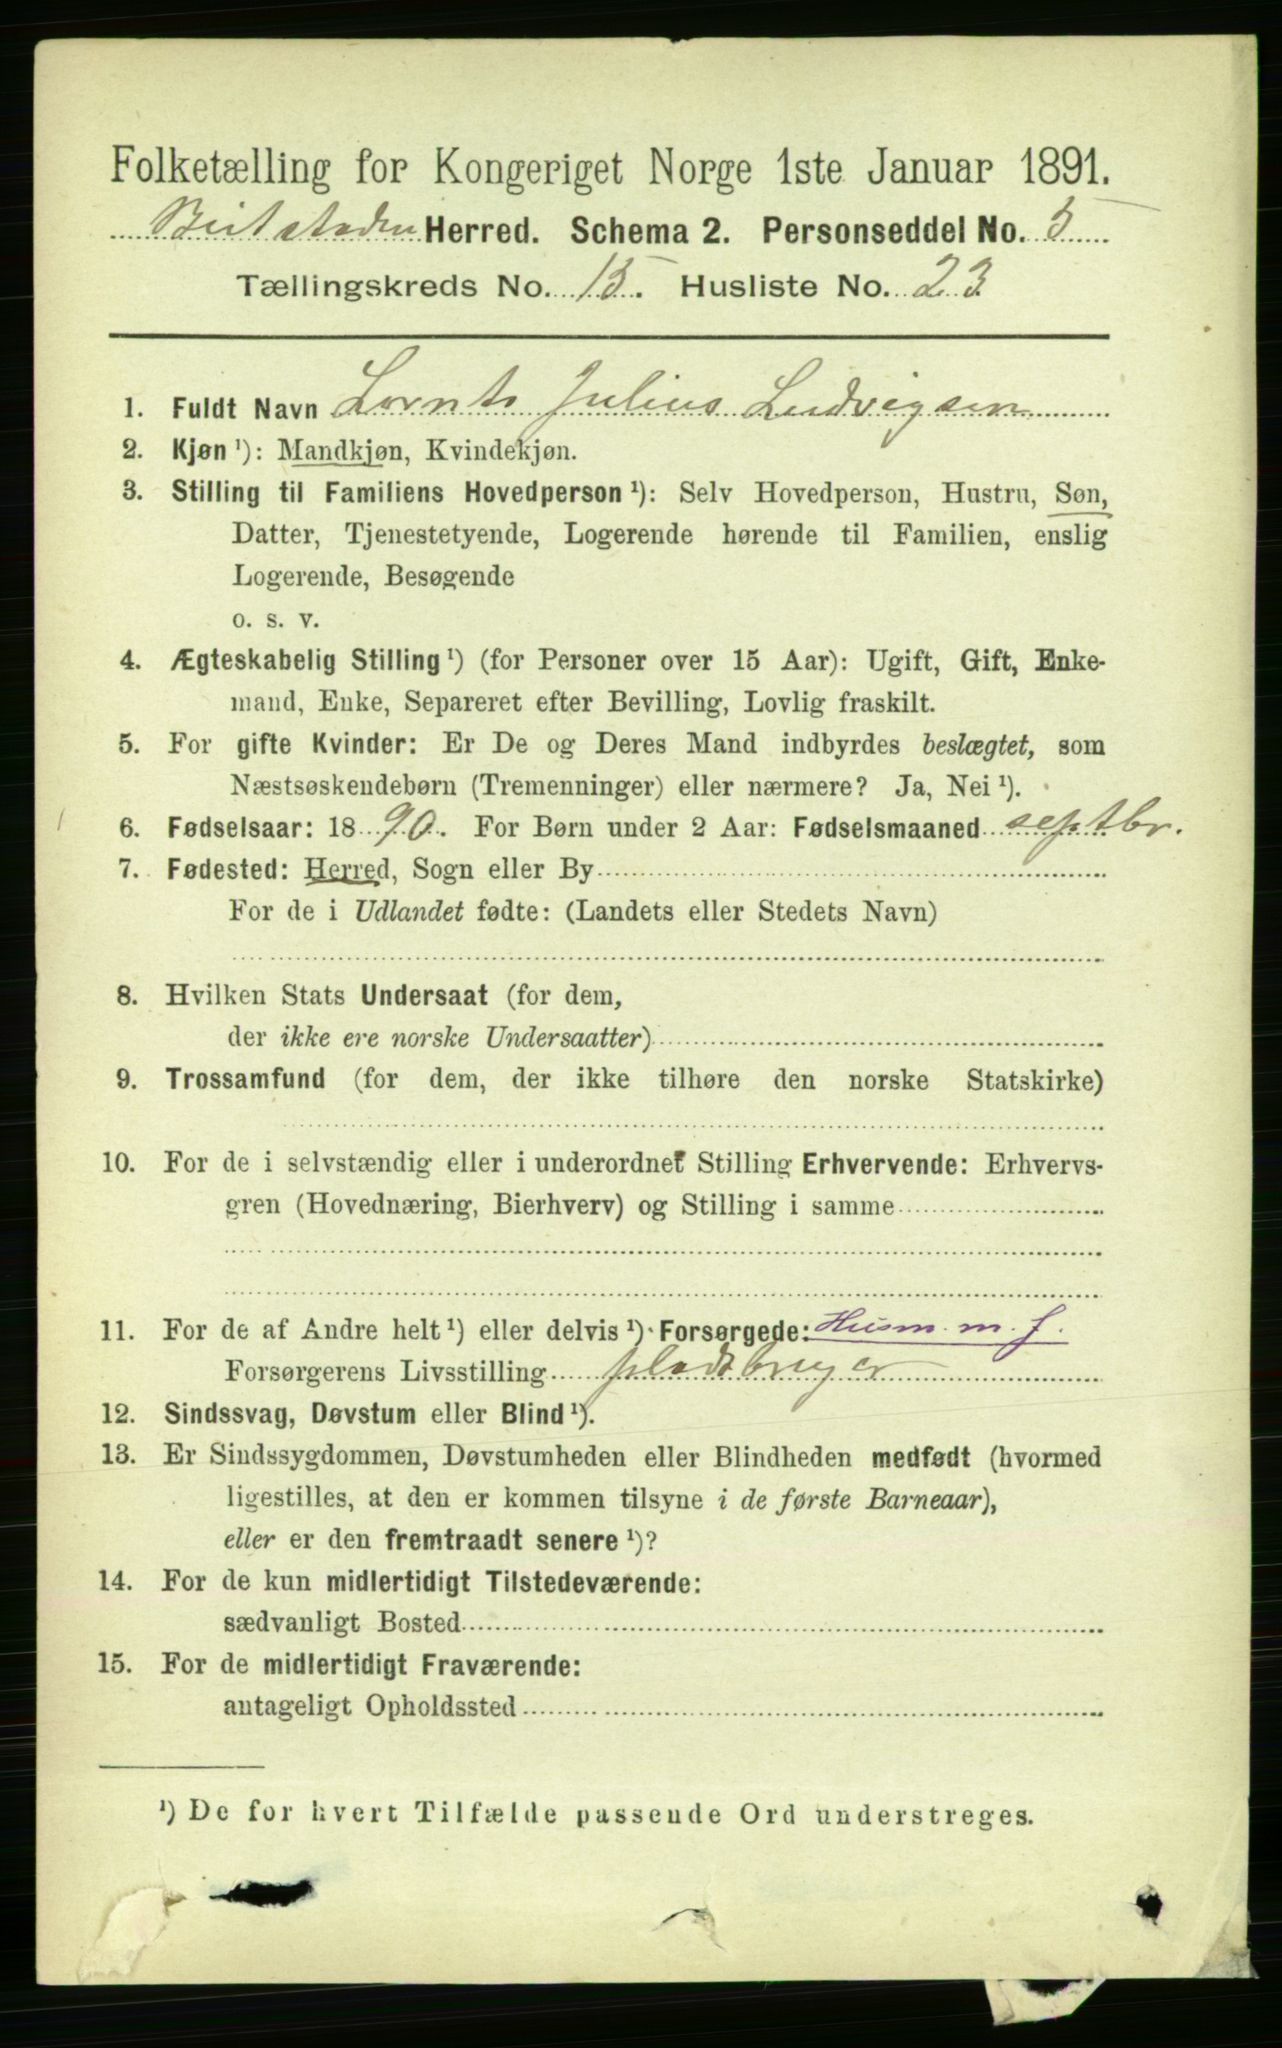 Folketælling for Kongeriget Norge 1ste Januar 1891.
Beitstaden Herred. Schema 2. Personseddel No. 5
Tællingskreds No. 15. Husliste No. 23
1. Fuldt Navn Lornts Julius Ludvigsen
2. Kjøn ¹): Mandkjøn, Kvindekjøn.
3. Stilling til Familiens Hovedperson ¹): Selv Hovedperson, Hustru, Søn,
Datter, Tjenestetyende, Logerende hørende til Familien, enslig
Logerende, Besøgende
o. s. v.
4. Ægteskabelig Stilling ¹) (for Personer over 15 Aar): Ugift, Gift, Enke-
mand, Enke, Separeret efter Bevilling, Lovlig fraskilt.
5. For gifte Kvinder: Er De og Deres Mand indbyrdes beslægtet, som
Næstsøskendebørn (Tremenninger) eller nærmere? Ja, Nei ¹).
6. Fødselsaar: 1890. For Børn under 2 Aar: Fødselsmaaned septbr.
7. Fødested: Herred, Sogn eller By
For de i Udlandet fødte: (Landets eller Stedets Navn)
8. Hvilken Stats Undersaat (for dem,
der ikke ere norske Undersaatter)
9. Trossamfund (for dem, der ikke tilhøre den norske Statskirke)
10. For de i selvstændig eller i underordnet Stilling Erhvervende: Erhvervs-
gren (Hovednæring, Bierhverv) og Stilling i samme
11. For de af Andre helt ¹) eller delvis ¹) Forsørgede: Husm. m. j.
Forsørgerens Livsstilling pladsbruger
12. Sindssvag, Døvstum eller Blind ¹).
13. Er Sindssygdommen, Døvstumheden eller Blindheden medfødt (hvormed
ligestilles, at den er kommen tilsyne i de første Barneaar),
eller er den fremtraadt senere ¹)?
14. For de kun midlertidigt Tilstedeværende:
sædvanligt Bosted
15. For de midlertidigt Fraværende:
antageligt Opholdssted
¹) De for hvert Tilfælde passende Ord understreges.